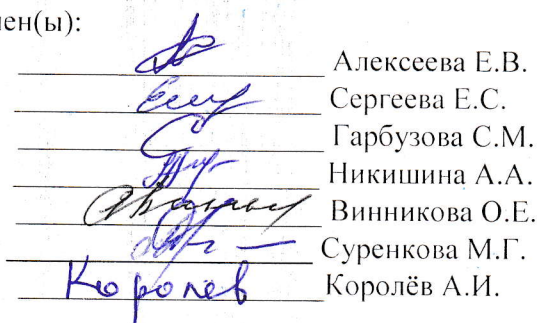 ен(ы):
Алексеева Е.В.
Сергеева Е.С.
Гарбузова С.М.
Никишина А.А.
Винникова О.Е.
Суренкова М.Г.
Королев Королёв А.И.